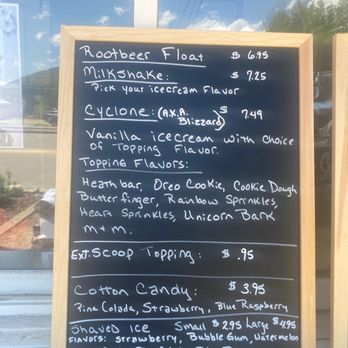 Rootbeer Float $ 6.95
Milkshake: $ 7.25
Pick your icecream Flavor
Cyclone: (A.K.A. Blizzard) $ 7.49
Vanilla icecream with choice
of Topping Flavor.
Topping Flavors:
Heath bar, Oreo Cookie, Cookie Dough
Butterfinger, Rainbow Sprinkles,
Heart Sprinkles, Unicorn Bark
M+M.
Ext. Scoop Topping: $ .95
Cotton Candy: $ 3.95
Pina Colada, Strawberry, Blue Raspberry
Shaved Ice Small $ 2.95 Large $ 4.95
Flavors: Strawberry, Bubble Gum, Watermelon